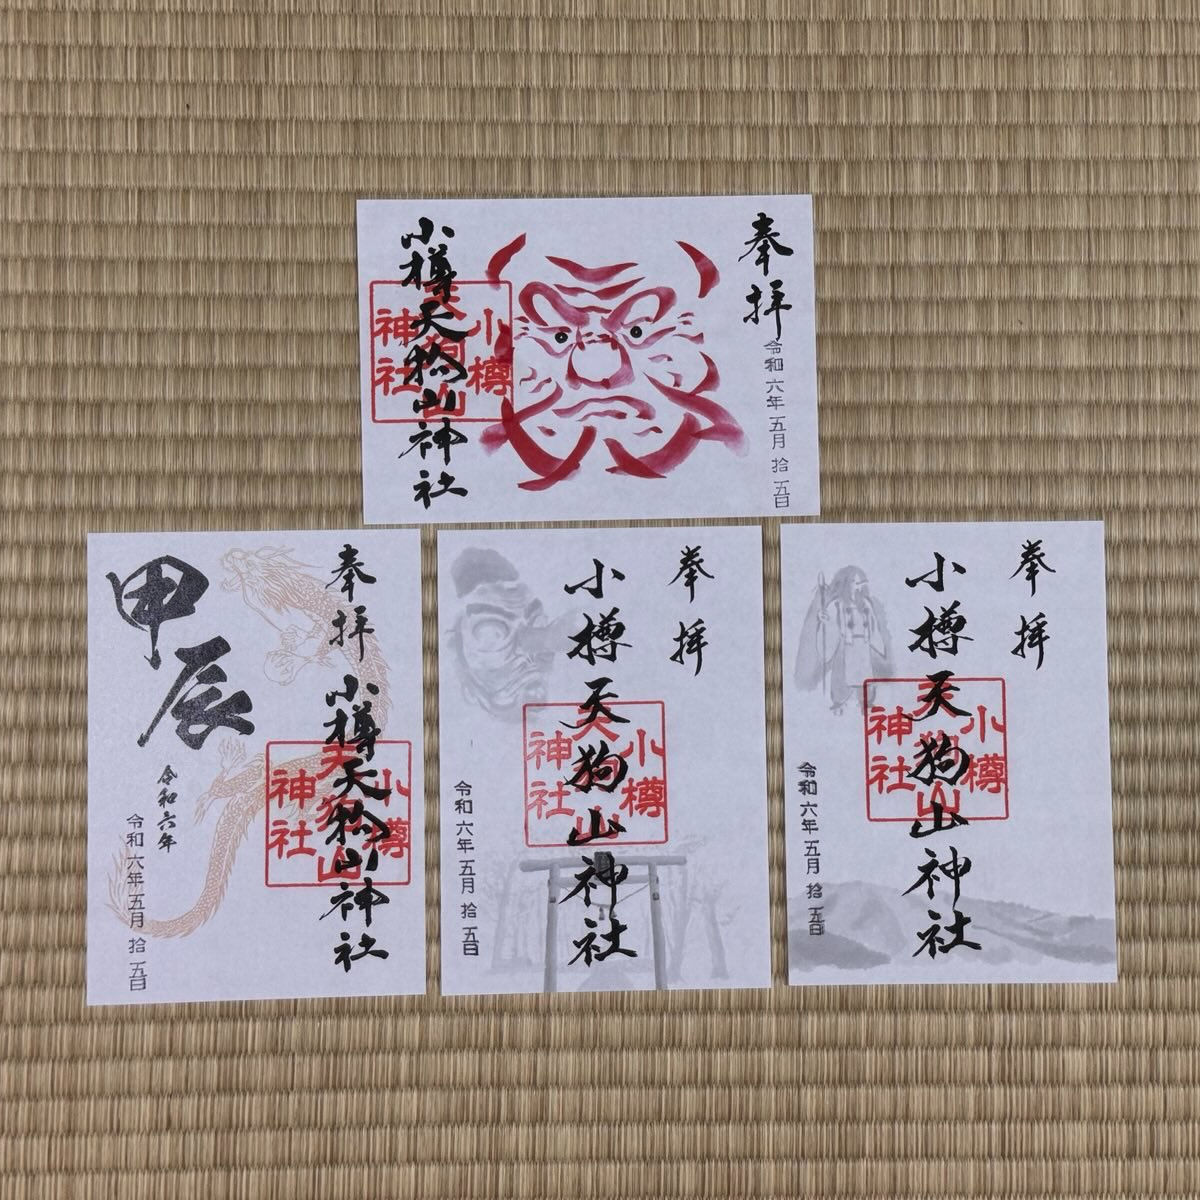 奉拝
令和六年五月拾五日
小樽天狗山神社
小樽
天狗山
神社
奉拝
小樽天狗山神社
小樽
天狗山
神社
甲辰
令和六年
令和六年五月拾五日
奉拝
小樽天狗山神社
小樽
天狗山
神社
令和六年五月拾五日
奉拝
小樽天狗山神社
小樽
天狗山
神社
令和六年五月拾五日